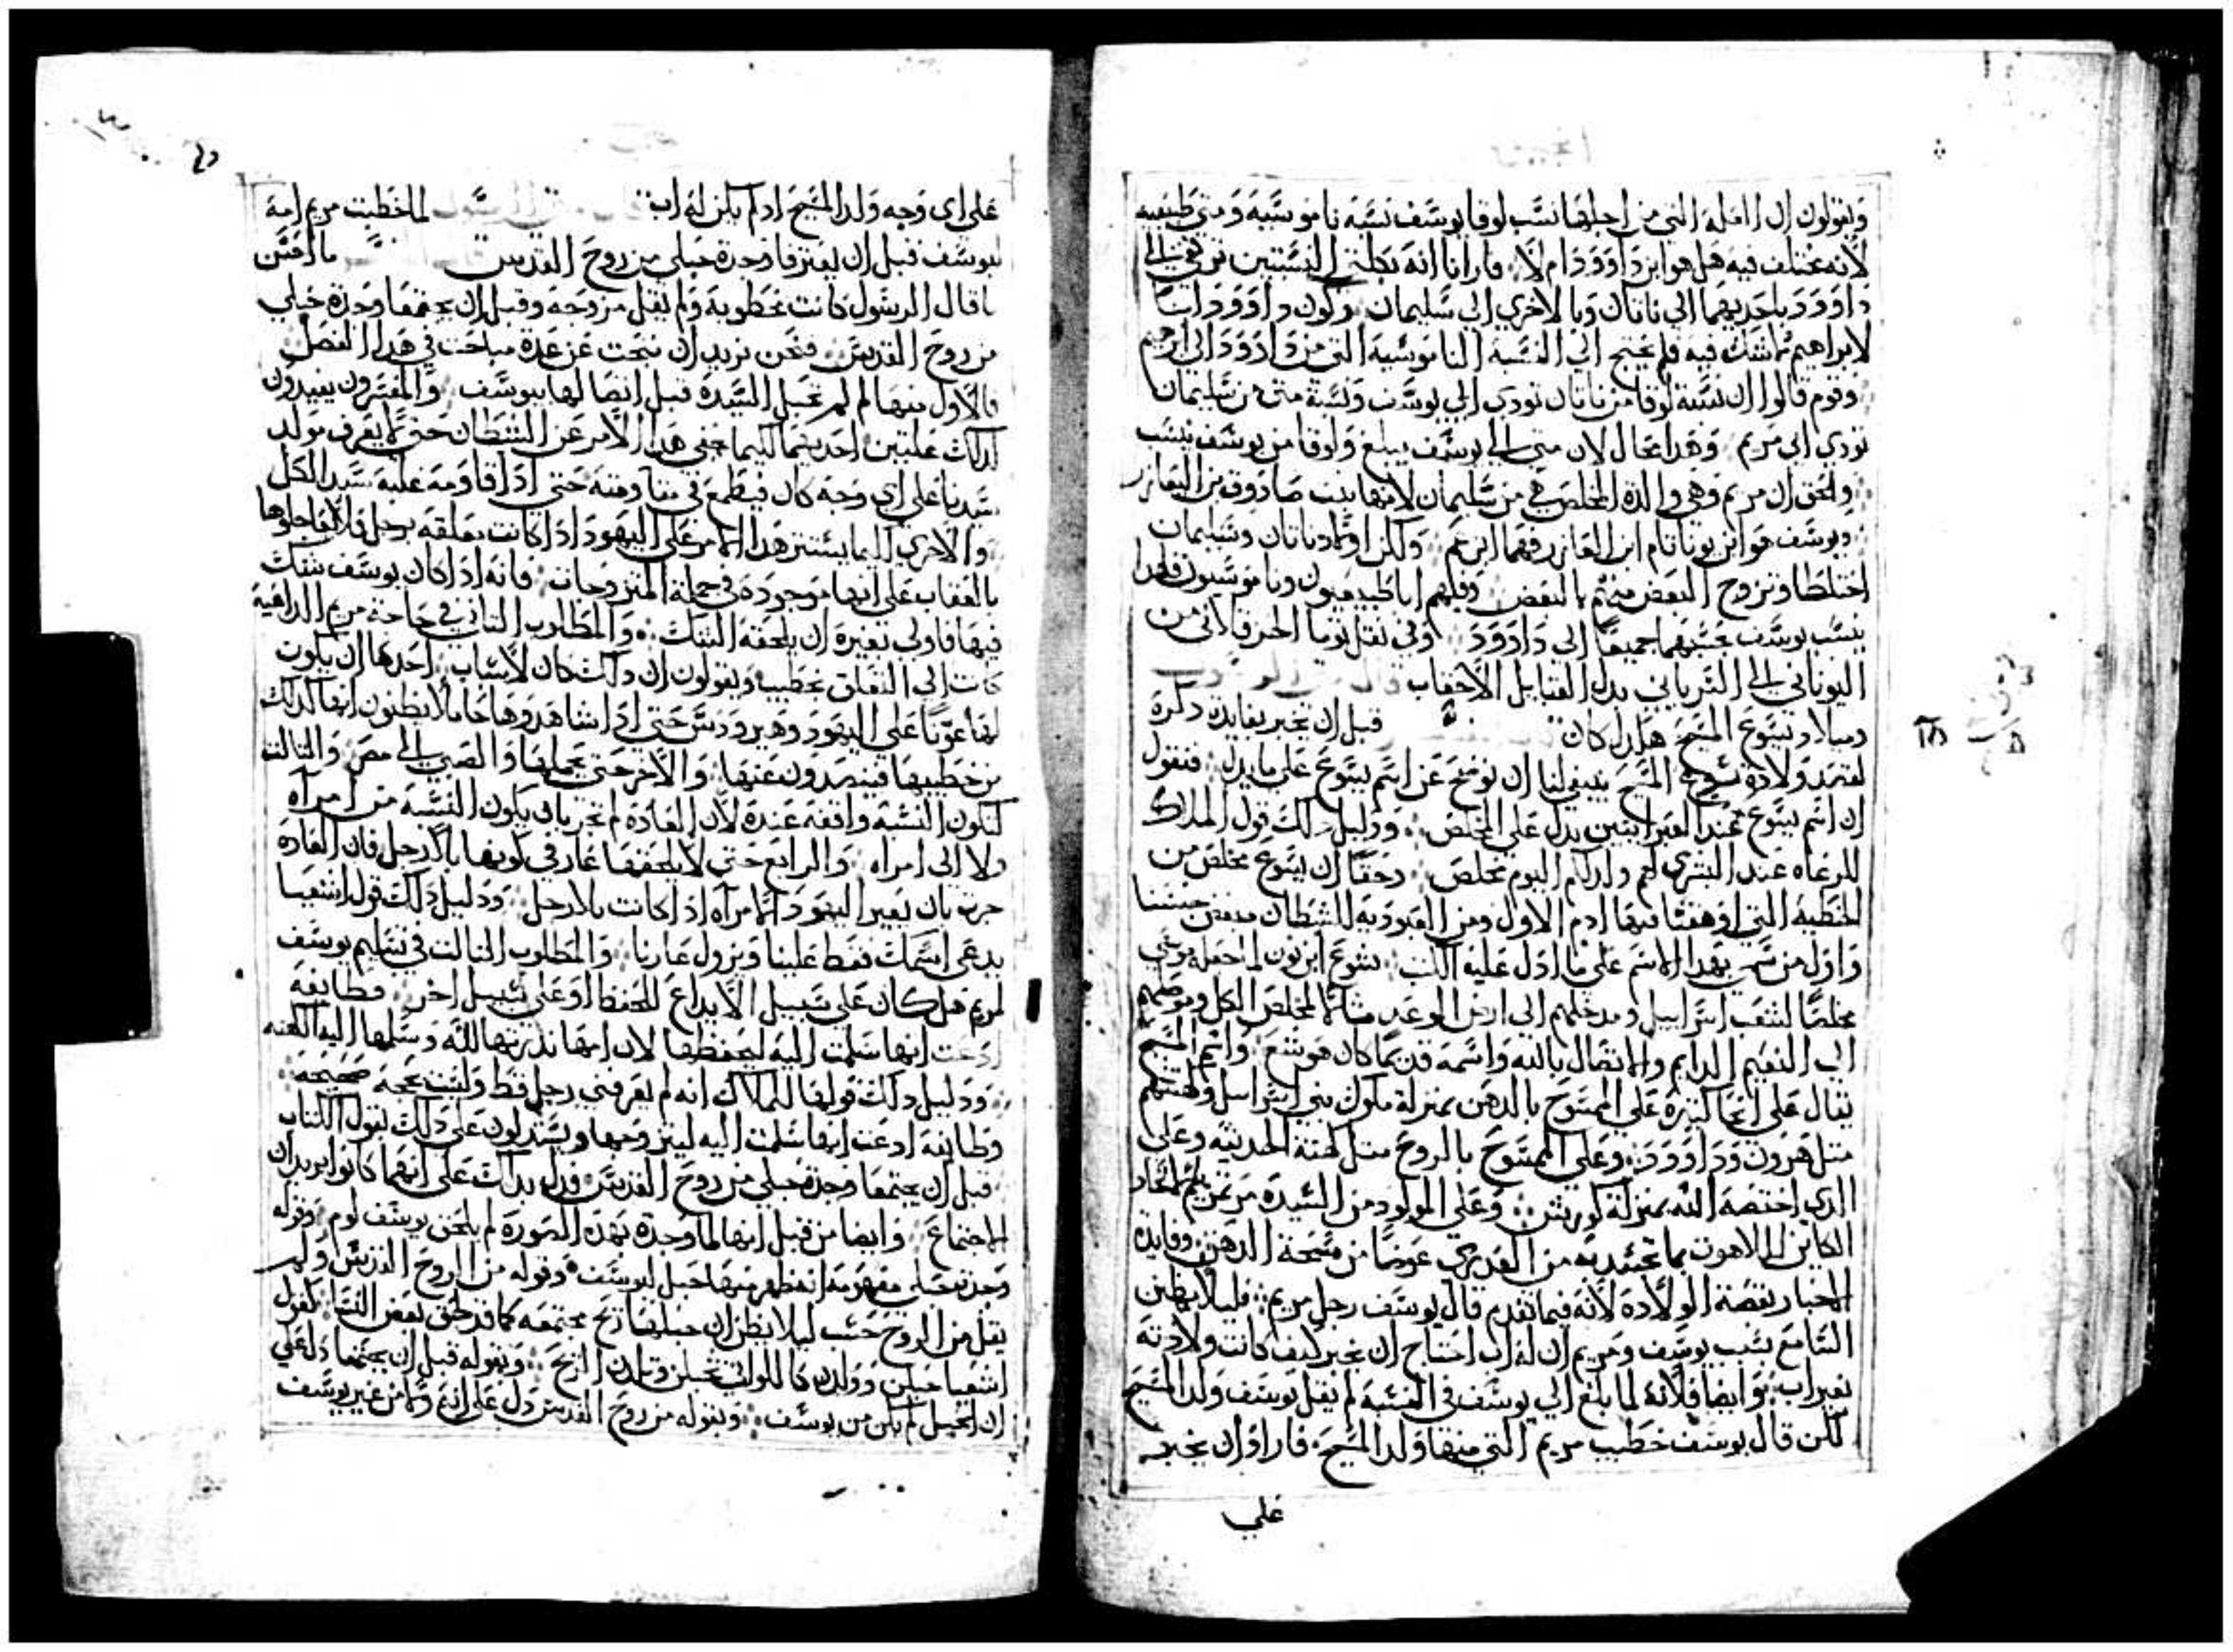 ويقولون ان العلة التي من اجلها نسب لوقا يوسف نسبة ناموسية ومتى طبيعية
لانه يختلف فيه هل هو ابن داوود ام لا فارانا انه بكلتي النسبتين ترقي الي
داوود باحديهما الي ناتان وبالاخري الي سليمان وكون داوود ابنا
لابراهيم ما شك فيه فلم يحتج الي النسبة الناموسية التي من داوود الي ابرهيم
وقوم قالوا ان نسبة لوقا من ناتان تودي الي يوسف ونسبة متى من سليمان
تودي الي مريم وهذا محال لان متى الي يوسف يبلغ ولوقا من يوسف ينسب
والحق ان مريم وهي والدة المخلص هي من سليمان لانها بنت صادوق بن اليعازر
ويوسف هو ابن يوناتام ابن العازر فهما ابن عم ولكن اولاد ناتان وسليمان
اختلطا وتزوج البعض منهم بالبعض وفيهم ابا طبيعيون وناموسيون فلهذا
ينسب يوسف بحسبهما جميعا الي داوود وفي نقل توما الحرقلاني من
اليوناني الي السرياني بدل القبايل الاحقاب قال
وميلاد يسوع المسيح هكذا كان قبل ان نخبر بفايدة ذكره
لقصة ولادة يسوع المسيح ينبغي لنا ان نوضح عن اسم يسوع علي ما يدل فنقول
ان اسم يسوع عند العبرانيين يدل علي المخلص ودليل ذلك قول الملاك
للرعاه عند البشري لهم ولد لكم اليوم مخلص وحقا ان يسوع مخلص من
الخطية التي اوهقنا فيها ادم الاول ومن العبودية للشيطان مبغض جنسنا
واول من سمي بهذا الاسم علي ما تدل عليه الكتب يشوع ابن نون لما جعله موسي
مخلصا لشعب اسراييل ومدخلهم الي ارض الوعد مثالا لمخلص الكل وموصلهم
الي النعيم الدايم والاتصال بالله واسمه قديما كان هوشع واسم المسيح
يقال علي انحا كثيرة علي الممسوح بالدهن بمنزلة ملوك بني اسراييل وكهنتهم
مثل هرون وداوود وعلي الممسوح بالروح مثل كهنة الحديثة وعلي
الذي اختصه الله بمنزلة كورش وعلي المولود من السيدة مرتمريم للاتحاد
الكاين للاهوت بما تجسد به من القدس عوضا من مسحة الدهن وفايدة
الاخبار بقصة الولادة لانه فيما تقدم قال يوسف رجل مريم فليلا يظن
السامع بسبب يوسف ومريم ان له اب احتاج ان يخبر كيف كانت ولادته
بغير اب وايضا فلانه لما بلغ الي يوسف في النسبة لم يقل يوسف ولد المسيح
لكن قال يوسف خطيب مريم التي منها ولد المسيح فاراد ان يخبر
علي
علي اي وجه ولد المسيح اذ لم يكن له اب لما خطبت مريم امه
ليوسف قبل ان يعترفا وجدة حبلي من روح القدس ما احسن
ما قال الرسول كانت مخطوبة ولم يقل مزوجه وقبل ان يجتمعا وجدة حبلي
من روح القدس فنحن نريد ان نبحث عن عدة مباحث في هذا الفصل
فالاول منها لم لم تحبل السيدة قبل اتصالها بيوسف والمفسرون يفيدون
لذلك علتين احديهما كيما يخفي هذا الامر عن الشيطان حتى لا يعرف مولد
سيدنا علي اي وجه كان فيطمع في مقاومته حتى اذا قاومه غلبه سيد الكل
والاخري كيما يستتر هذا الامر علي اليهود اذا كانت معلقه برجل فلا يعاجلوها
بالعقاب علي انها موجودة في جملة المتزوجات فانه اذا كان يوسف شك
فيها فاولي بغيره ان يلحقه الشك والمطلوب الثاني في حاجة مريم الداعية
كانت الي التعلق بخطيب ويقولون ان ذلك كان لاسباب احدها ان يكون
لها عونا علي اليهود وهيرودس حتى اذا شاهدوها حاملا يظنون انها كذلك
من خطيبها فيتصدون عنها والاخر حتى يحملها والصبي الي مصر والثالثة
لتكون النسبة واقعة عنده لان العادة لم تجر بان يكون النسبة من امراه
ولا الي امراه والرابع حتى لا يلحقها عار في كونها بلا رجل فان العادة
جرت بان يعير اليهود الامراه اذا كانت بلا رجل ودليل ذلك قول اشعيا
يدعي اسمك فقط علينا ويزول عارنا والمطلوب الثالث في تسليم يوسف
لمريم هل كان علي سبيل الايداع للحفظ او علي سبيل اخر فطايفة
ادعت انها سلمت اليه ليحفظها لان امها نذرتها لله وسلمها اليه الكهنه
ودليل ذلك قولها للملاك انه لم يعرفني رجل قط وليست بحجة صحيحة
وطايفة ادعت انها سلمت اليه ليتزوجها ويستدلون علي ذلك بقول الكتاب
قبل ان يجتمعا وجدة حبلي من روح القدس فدل بذلك علي انهما كانوا يريدان
الاجتماع وايضا من قبل انها لما وجدة بهذه الصورة لم يلحق يوسف لوم وقوله
وجدة حبلي مفهومه انه ظهر منها حبل ليوسف وقوله من الروح القدس ولم
يقل من الروح حسب ليلا يظن ان حبلها ريح مجتمعه كما قد لحق بعض النسا كقول
اشعيا حبلن وولدن كاللواتي يحبلن وتلدن الريح وبقوله قبل ان يجتمعا دل علي
ان الحبل لم يكن من يوسف وبقوله من روح القدس دل علي انه ولا من غير يوسف